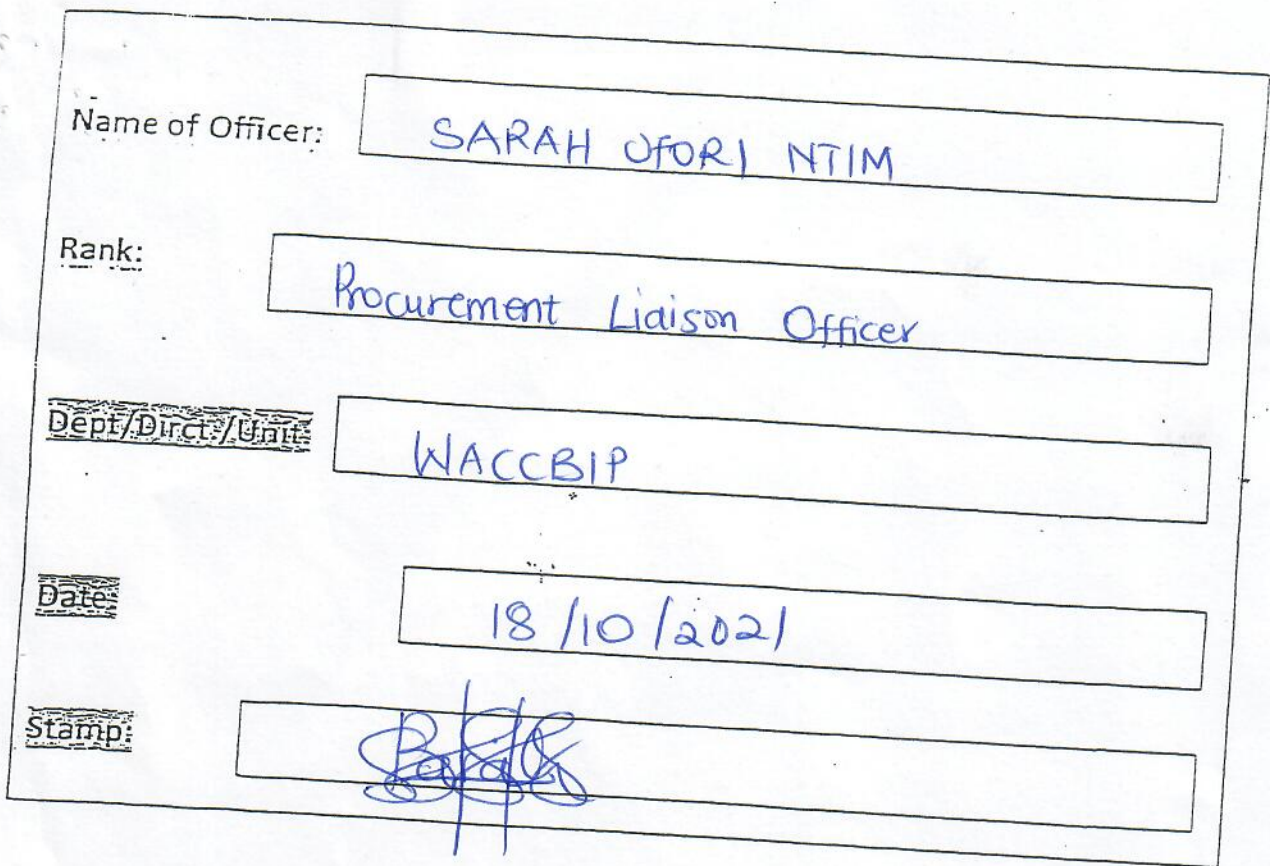 Name of Officer: SARAH OFORI NTIM
Rank: Procurement Liaison Officer
Dept/Dirct./Unit: WACCBIP
Date: 18/10/2021
Stamp: